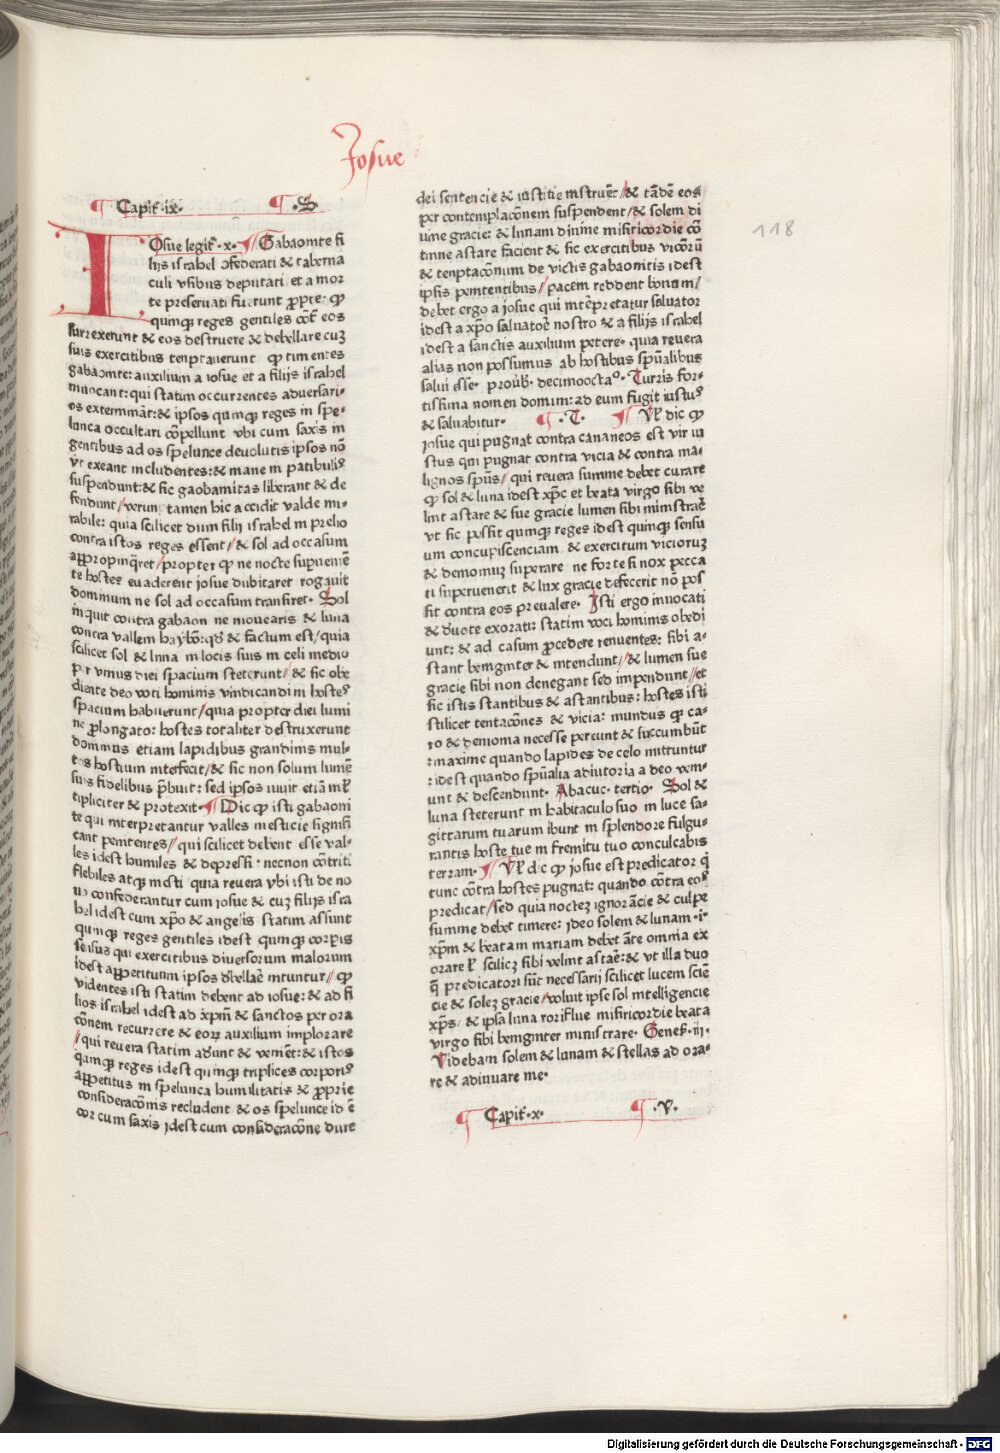 Josue
118
¶ Capit̃·ix· ¶ ·S·
IOsue legit̃·x·¶Gabaonite fi
lijs israhel ɔfederati & taberna
culi vsibus deputati et a mor
te preseruati fuerunt p̱pte: qͥ
quinqꝫ reges gentiles cõt̃ eos
surrexerunt & eos destruere & debellare cuꝫ
suis exercitibus temptauerunt qͥ timentes
gabaonite: auxilium a iosue et a filijs israhel
inuocant: qui statim occurrentes aduersari-
os exterminãt: & ipsos quinqꝫ reges in spe-
lunca occultari cõpellunt vbi cum saxis in
gentibus ad os spelunce deuolutis ipsos nõ
vt exeant includentes: & mane in patibulis
suspendunt: & sic gaobamitas liberant & de
fendunt/verun tamen hic accidit valde mi-
rabile: quia scilicet dum filij israhel in prelio
contra istos reges essent/& sol ad occasum
app̱ropinq̃ret/propter qͥ ne nocte supuenie͂
te hostes euaderent iosue dubitaret rogauit
dominum ne sol ad occasum transiret· Sol
inquit contra gabaon ne mouearis & luna
contra vallem haylõ: qđ & factum est/quia
scilicet sol & luna in locis suis in celi medio
per vnius diei spacium steterunt/& sic obe
diente deo voti hominis vindicandi in hostes
spacium habuerunt/quia propter diei lumi
ne p̱longato: hostes totaliter destruxerunt
dominus etiam lapidibus grandinis mul-
tos hostium interfecit/& sic non solum lume͂
suis fidelibus p̃buit: sed ipsos iuuit etiã ml̃
tipliciter & protexit·¶Dic qͥ isti gabaoni
te qui interpretantur valles mesticie signifi
cant penitentes/qui scilicet debent esse val-
les idest humiles & depressi· necnon cõtriti
flebiles atqꝫ mesti quia reuera vbi isti de no
uo confederantur cum iosue & cuꝫ filijs isra
hel idest cum xp̃o & angelis statim assunt
quinqꝫ reges gentiles idest quinqꝫ corp̱is
sensus qui exercitibus diuersorum malorum
idest appetituum ipsos d̃bellãe intuntur/qͥ
videntes isti statim debent ad iosue: & ad fi
lios israhel idest ad xp̃m & sanctos per ora
cõnem recurrere & eorꝝ auxilium implorare
/qui reuera statim adunt & venie͂t: & istos
quinqꝫ reges idest quinqꝫ triplices corporis
appetitus in spelunca humilitatis & p̱prie
consideracõnis recludent & os spelunce id e͂
cor cum saxis idest cum consideracõne dure
dei sentencie & iustitie instrue͂t/& tãde͂ eos
per contemplacõnem suspendent/& solem di
uine gracie: & lunam diuine misericordie cõ
tinue astare facient & sic exercitibus vicõrũ
& temptacõnum de victis gabaonitis idest
ipsis penitentibus/pacem reddent bonam/
debet ergo a iosue qui int̃p̱retatur saluator
idest a xp̃o saluatore nostro & a filijs israhel
idest a sanctis auxilium petere· quia reuera
alias non possumus ab hostibus sp̃ualibus
salui esse· prouḃ· decimooctaº· Turris for-
tissima nomen domini: ad eum fugit iustus
& saluabitur· ¶ ·T· ¶ Vl̃ dic qͥ
iosue qui pugnat contra cananeos est vir iu
stus qui pugnat contra vicia & contra ma-
lignos spũs/qui reuera summe debet curare
qͥ sol & luna idest xp̃c et beata virgo sibi ve
lint astare & sue gracie lumen sibi ministrare
vt sic possit quinqꝫ reges idest quinqꝫ sensu
um concupiscenciam & exercitum vicioruꝫ
& demoniuꝫ superare ne forte si nox pecca
ti superuenerit & lux gracie defecerit nõ pos
sit contra eos preualere· Isti ergo inuocati
& d̃uote exorati: statim voci hominis obedi
unt: & ad casum p̱cedere renuentes: sibi a-
stant benigniter & intendunt/& lumen sue
gracie sibi non denegant sed impendunt/et
sic istis stantibus & astantibus: hostes isti
scilicet tentacõnes & vicia: mundus qꝫ ca-
ro & demonia necesse pereunt & succumbũt
: maxime quando lapides de celo mittuntur
: idest quando sp̃ualia adiutoria a deo veni-
unt & descendunt· Abacuc· tertio· Sol &
luna steterunt in habitaculo suo in luce sa-
gittarum tuarum ibunt in splendore fulgu-
rantis haste tue in fremitu tuo conculcabis
terram·¶Vl̃ dic qͥ iosue est predicator q̃
tunc cõtra hostes pugnat: quando cõtra eos
predicat/sed quia nocteꝫ ignorãcie & culpe
summe debet timere: ideo solem & lunam·i·
xp̃m & beatam mariam debet ãte omnia ex
orare vt scilicꝫ sibi velint astãe: & vt illa duo
q̃ predicatori sũt necessarij scilicet lucem scie͂
cie & soleꝫ gracie/voluit ipse sol intelligencie
xp̃s/& ipsa luna roriflue misericordie beata
virgo sibi benigniter ministrare· Genes̃·iij·
Videbam solem & lunam & stellas ad ora-
re & adiuuare me·
¶ Capit̃·x· ¶ ·V·
Digitalisierung gefördert durch die Deutsche Forschungsgemeinschaft - DFG